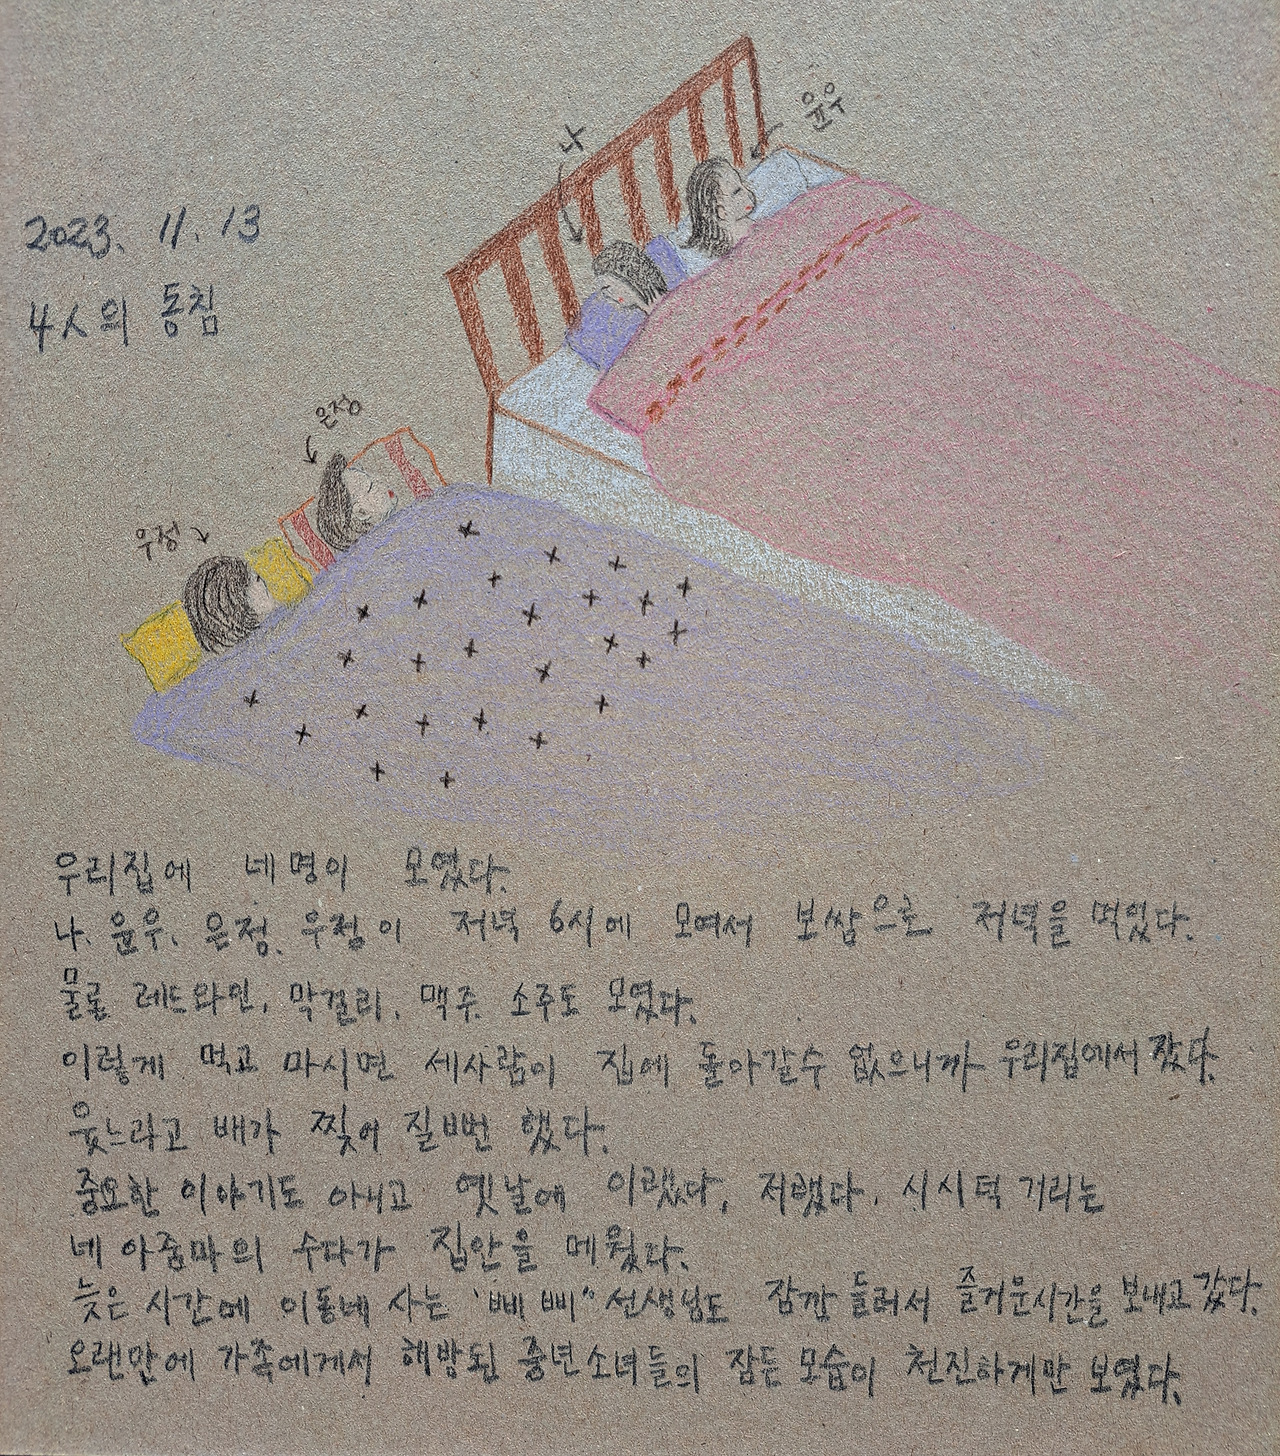 2023. 11. 13
4人의 동침
나
윤우
은정
우정
우리집에 네명이 모였다.
나. 윤우. 은정. 우정이 저녁 6시에 모여서 보쌈으로 저녁을 먹었다.
물론 레드와인, 막걸리, 맥주. 소주도 모였다.
이렇게 먹고 마시면 세사람이 집에 돌아갈수 없으니까 우리집에서 잤다.
웃느라고 배가 찢어 질뻔 했다.
중요한 이야기도 아니고 옛날에 이랬다, 저랬다. 시시덕 거리는
네 아줌마의 수다가 집안을 메웠다.
늦은 시간에 이동네 사는 '삐삐" 선생님도 잠깐 들러서 즐거운시간을 보내고 갔다.
오랜만에 가족에게서 해방된 중년소녀들의 잠든 모습이 천진하게만 보였다.